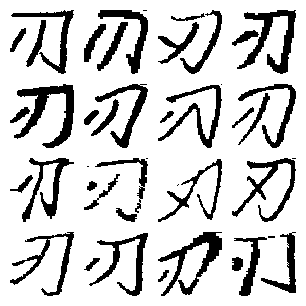 刃刃刃刃
刃刃刃刃
刃刃刃刃
刃刃刃刃